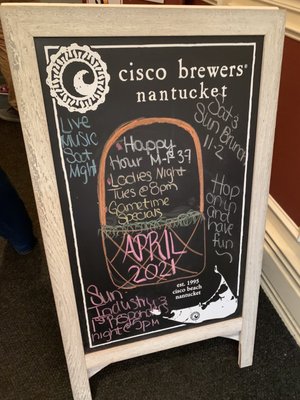 cisco brewers
nantucket
Live
Music
Sat
Night
Happy
Hour M-F 37
Ladies Night
Tues @ 8pm
Gametime
Specials
APRIL
2021
Sun Brunch
11-2
Hop
on in
and
have
fun
est. 1995
cisco beach
nantucket
Sun
Industry &
1st respond
night @ 5pm